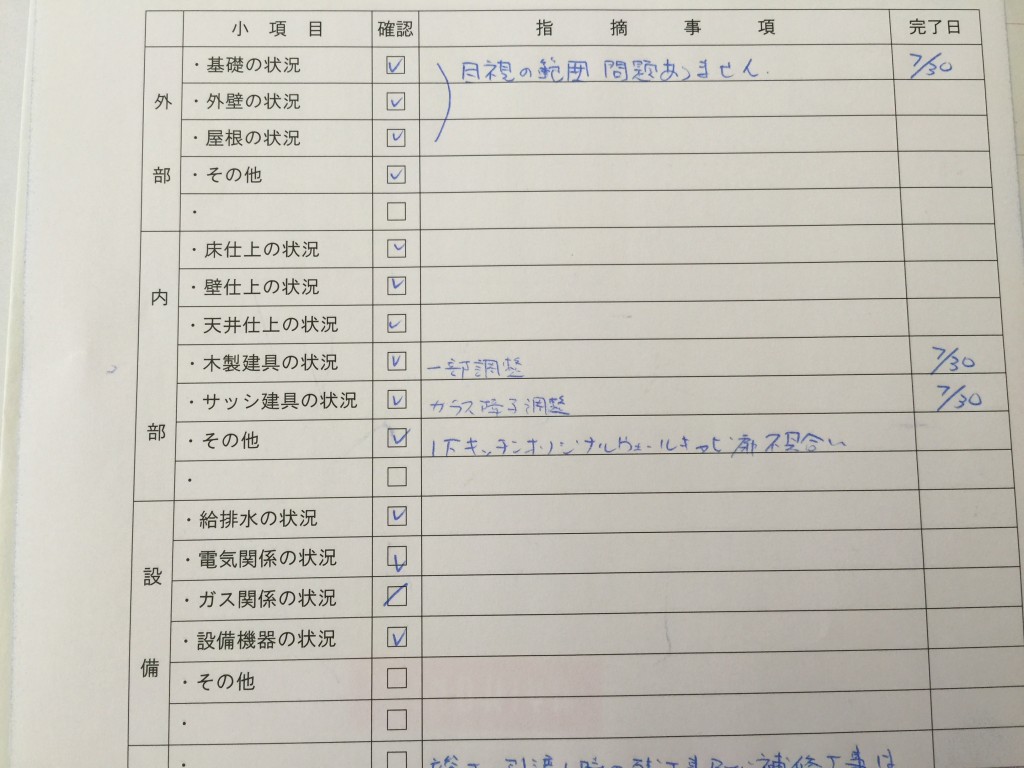 小項目 確認 指摘事項 完了日
外部
・基礎の状況 目視の範囲 問題ありません. 7/30
・外壁の状況
・屋根の状況
・その他
・
内部
・床仕上の状況
・壁仕上の状況
・天井仕上の状況
・木製建具の状況 一部調整 7/30
・サッシ建具の状況 ガラス障子調整 7/30
・その他 1Fキッチン 不具合い
・
設備
・給排水の状況
・電気関係の状況
・ガス関係の状況
・設備機器の状況
・その他
・
・ 補修工事は